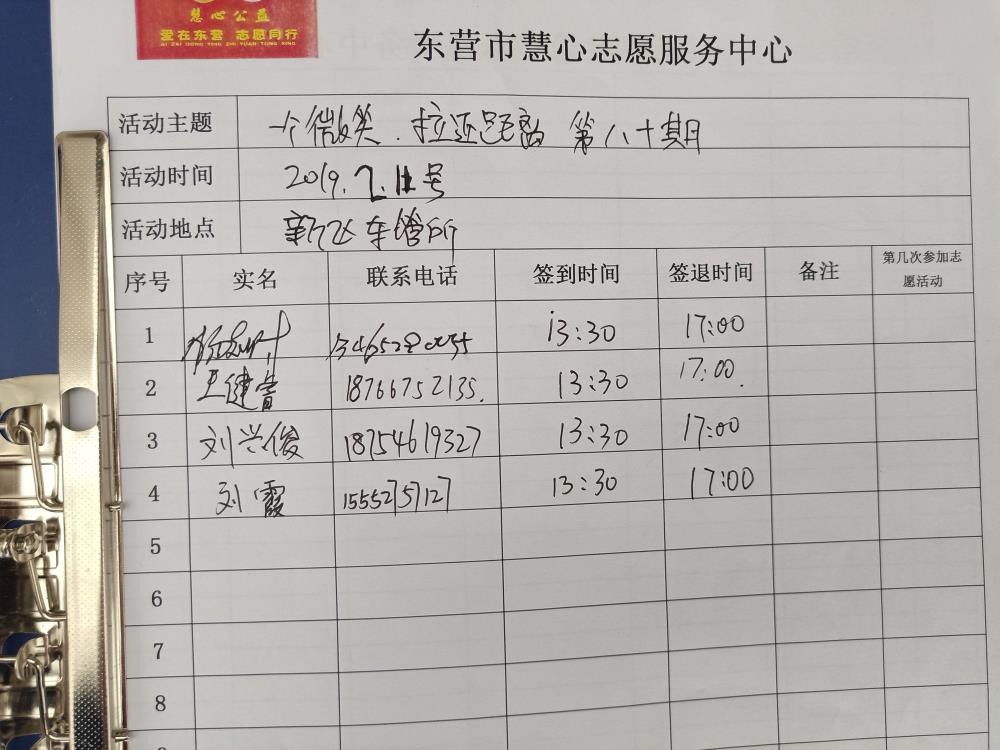 慧心公益
爱在东营 志愿同行
AI ZAI DONG YING ZHI YUAN TONG XING
东营市慧心志愿服务中心
活动主题 一个微笑.拉近距离 第八十期
活动时间 2019.7.11号
活动地点 新飞车管所
序号 实名 联系电话 签到时间 签退时间 备注 第几次参加志
愿活动
1 13:30 17:00
2 王健 18766752135. 13:30 17:00.
3 刘兴俊 18754619327 13:30 17:00
4 刘霞 15552757127 13:30 17:00
5
6
7
8